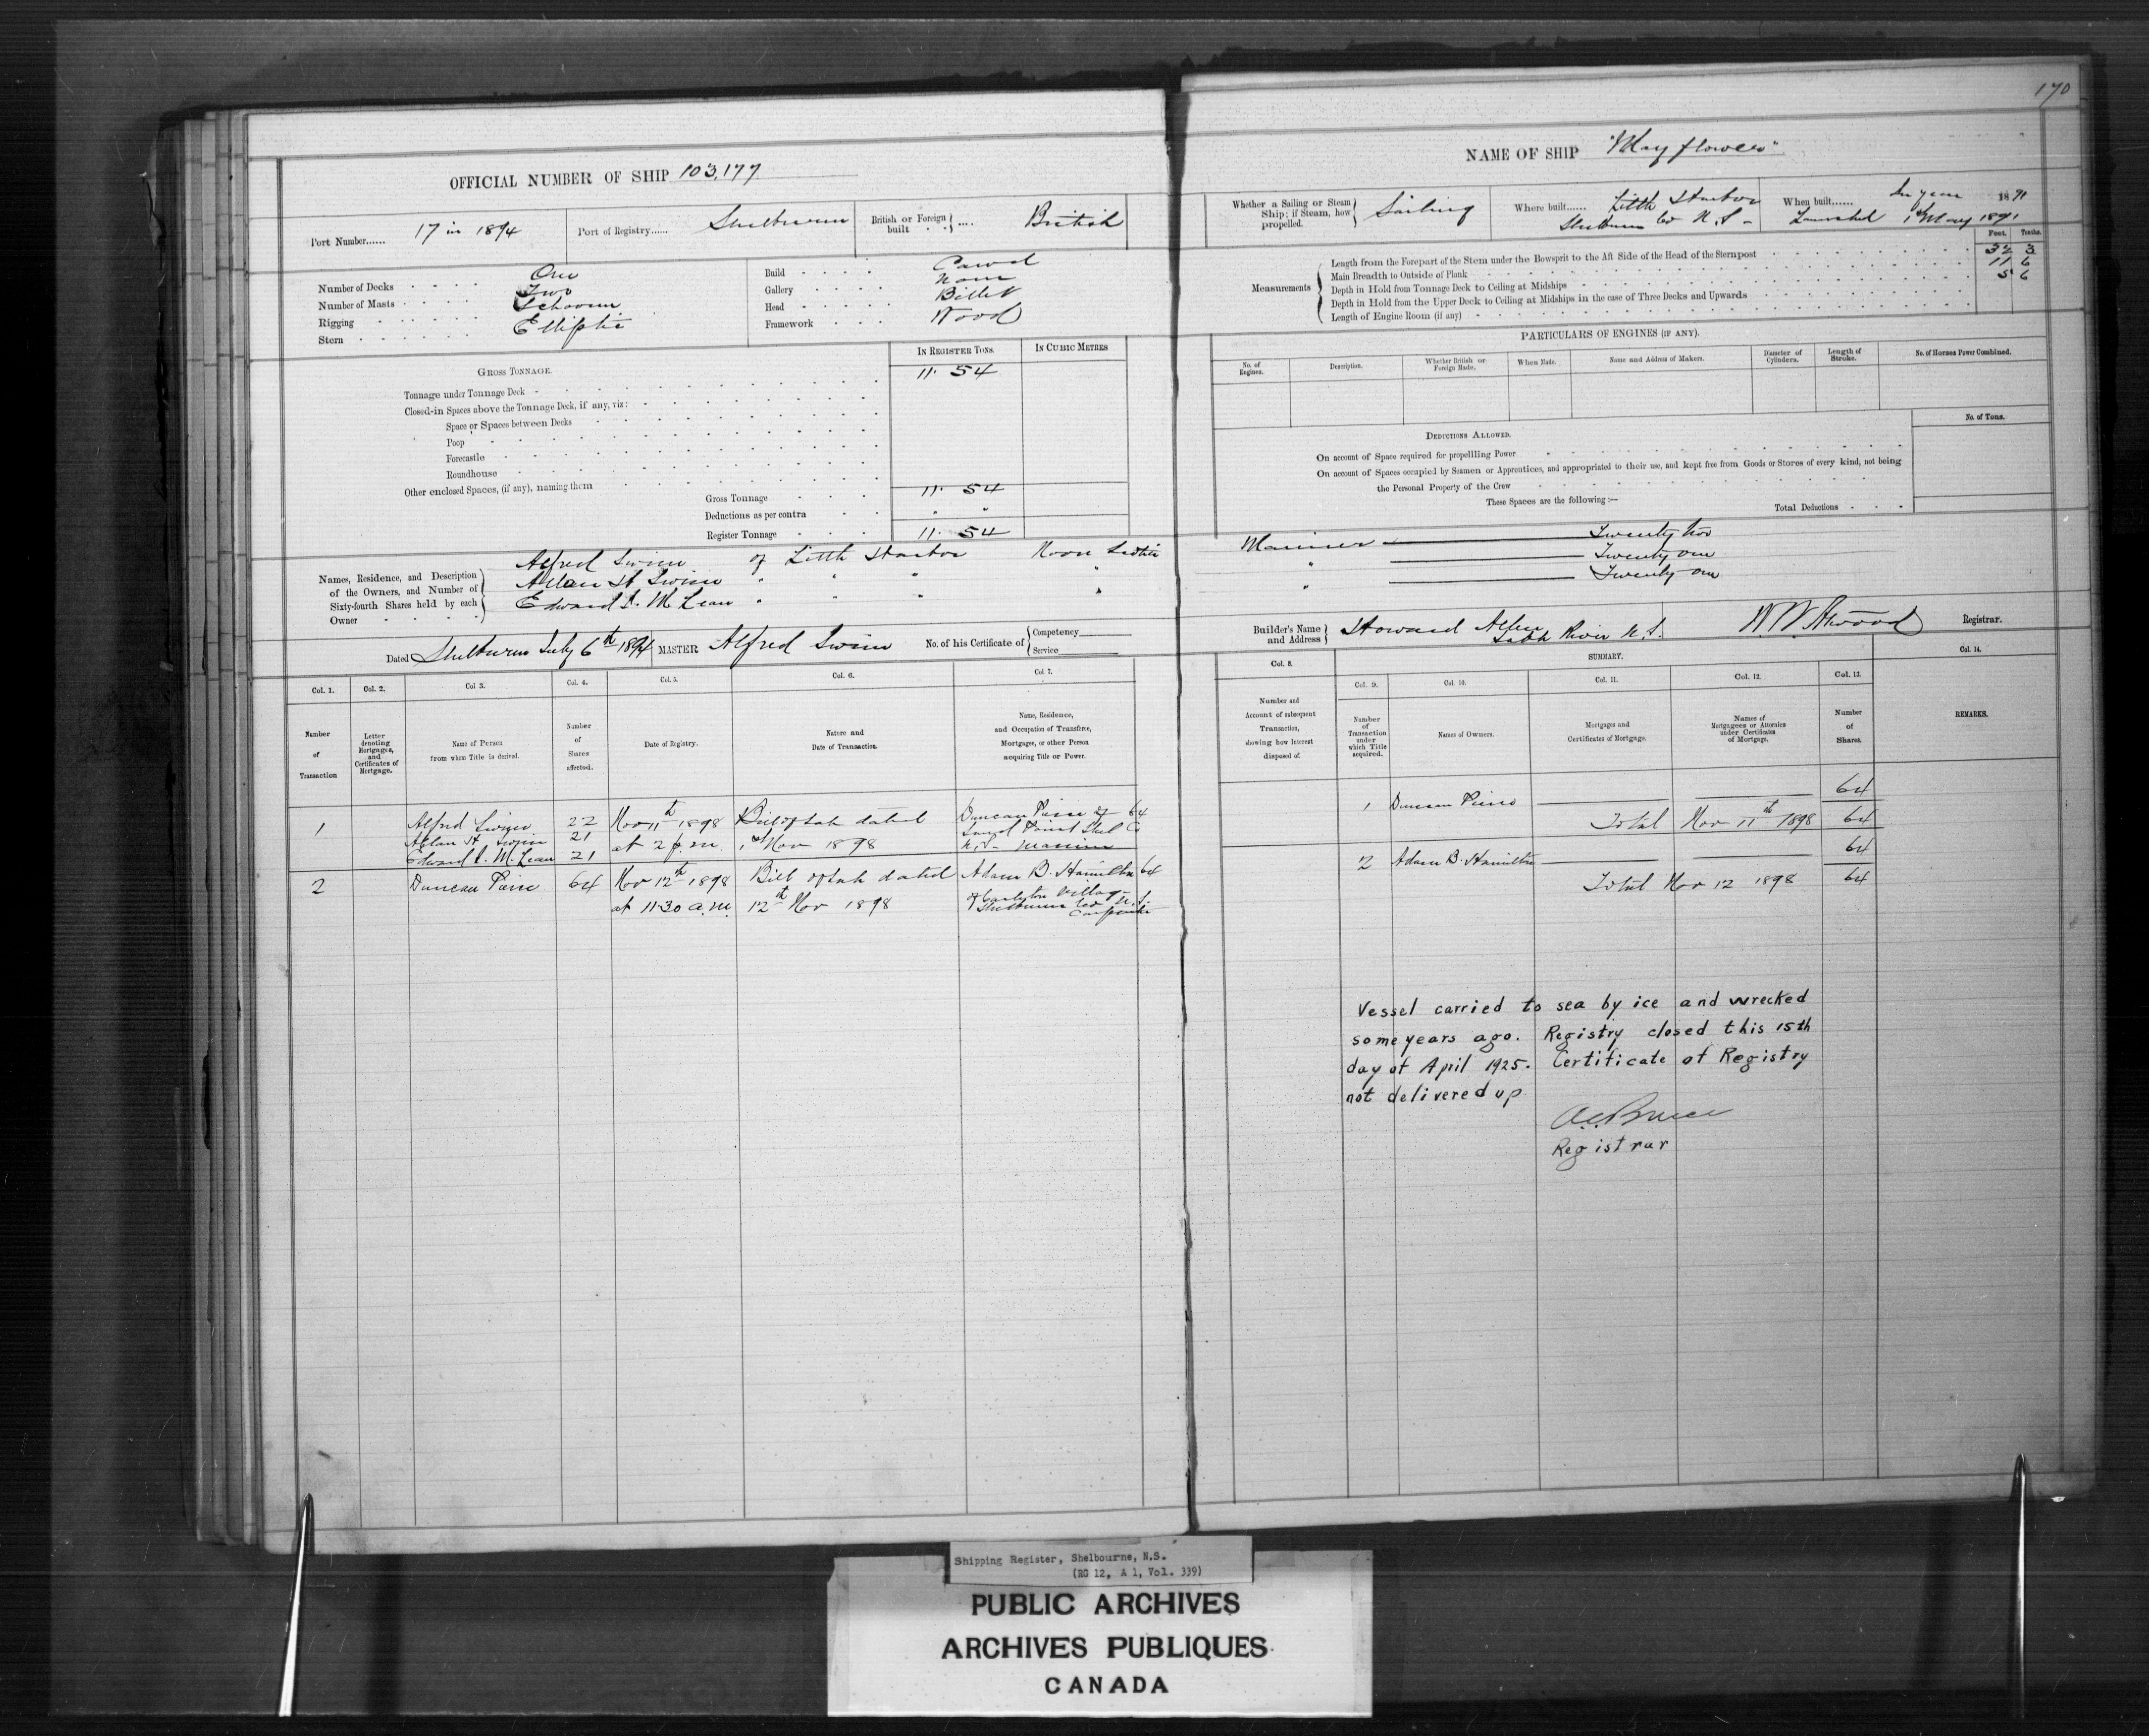 170
OFFICIAL NUMBER OF SHIP 103,177
NAME OF SHIP "Mayflower"
Port Number...... 17 in 1894
Port of Registry...... Shelburne
British or Foreign built .... British
Whether a Sailing or Steam Ship; if Steam, how propelled. Sailing
Where built...... Little Harbor Shelburne Co N.S.
When built...... In year 1891 Launched 1st May 1891
Number of Decks One
Number of Masts Two
Rigging Schooner
Stern Elliptic
Build Carvel
Gallery None
Head Billet
Framework Wood
Measurements
Feet. Tenths.
Length from the Forepart of the Stem under the Bowsprit to the Aft Side of the Head of the Sternpost 32 3
Main Breadth to Outside of Plank 11 6
Depth in Hold from Tonnage Deck to Ceiling at Midships 5 6
Depth in Hold from the Upper Deck to Ceiling at Midships in the case of Three Decks and Upwards
Length of Engine Room (if any)
GROSS TONNAGE.
IN REGISTER TONS.
IN CUBIC METRES
Tonnage under Tonnage Deck 11. 54
Closed-in Spaces above the Tonnage Deck, if any, viz:
Space or Spaces between Decks
Poop
Forecastle
Roundhouse
Other enclosed Spaces, (if any), naming them
Gross Tonnage 11. 54
Deductions as per contra " "
Register Tonnage 11. 54
PARTICULARS OF ENGINES (IF ANY).
No. of Engines.
Description.
Whether British or Foreign Made.
When Made.
Name and Address of Makers.
Diameter of Cylinders.
Length of Stroke.
No. of Horses Power Combined.
No. of Tons.
DEDUCTIONS ALLOWED.
On account of Space required for propelling Power
On account of Spaces occupied by Seamen or Apprentices, and appropriated to their use, and kept free from Goods or Stores of every kind, not being
the Personal Property of the Crew
These Spaces are the following:—
Total Deductions
Names, Residence, and Description of the Owners, and Number of Sixty-fourth Shares held by each Owner
Alfred Swim of Little Harbor Nova Scotia Mariner Twenty two
Allan H Swim " " " " " Twenty one
Edward D. McLean " " " " " Twenty one
Dated Shelburne July 6th 1894
MASTER Alfred Swim
No. of his Certificate of
Competency
Service
Builder's Name and Address Howard Allen Sable River N.S.
W.W. Atwood Registrar.
Col. 1.
Col. 2.
Col 3.
Col. 4.
Col 5.
Col. 6.
Col 7.
Col. 8.
SUMMARY.
Col. 9.
Col. 10.
Col. 11.
Col. 12.
Col. 13
Col. 14.
Number of Transaction
Letter denoting Mortgages, and Certificates of Mortgage.
Name of Person from whom Title is derived.
Number of Shares affected.
Date of Registry.
Nature and Date of Transaction.
Name, Residence, and Occupation of Transferee, Mortgagee, or other Person acquiring Title or Power.
Number and Account of subsequent Transaction, showing how interest disposed of.
Number of Transaction under which Title acquired.
Names of Owners.
Mortgages and Certificates of Mortgage.
Names of Mortgagees or Attornies under Certificates of Mortgage.
Number of Shares.
REMARKS.
1 Alfred Swim 22 Nov 11th 1898 Bill of Sale dated Duncan Pierce of 64
Allan H Swim 21 at 2 p.m. 1st Nov 1898 Sand Point Shel Co
Edward D. McLean 21 N.S. Mariner
1 Duncan Pierce 64
Total Nov 11th 1898 64
2 Duncan Pierce 64 Nov 12th 1898 Bill of Sale dated Adam B. Hamilton 64
at 11.30 a.m. 12th Nov 1898 of Carleton Village
Shelburne Co N.S.
Carpenter
2 Adam B. Hamilton 64
Total Nov 12 1898 64
Vessel carried to sea by ice and wrecked
some years ago. Registry closed this 15th
day of April 1925. Certificate of Registry
not delivered up
Registrar
Shipping Register, Shelbourne, N.S.
(RG 12, A 1, Vol. 339)
PUBLIC ARCHIVES
ARCHIVES PUBLIQUES
CANADA